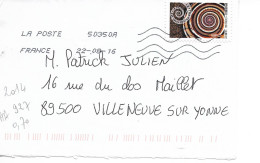 LA POSTE 50350A
FRANCE 22-08-16
M. Patrick JULIEN
16 rue du clos Maillet
89500 VILLENEUVE SUR YONNE
2014
927
0,70